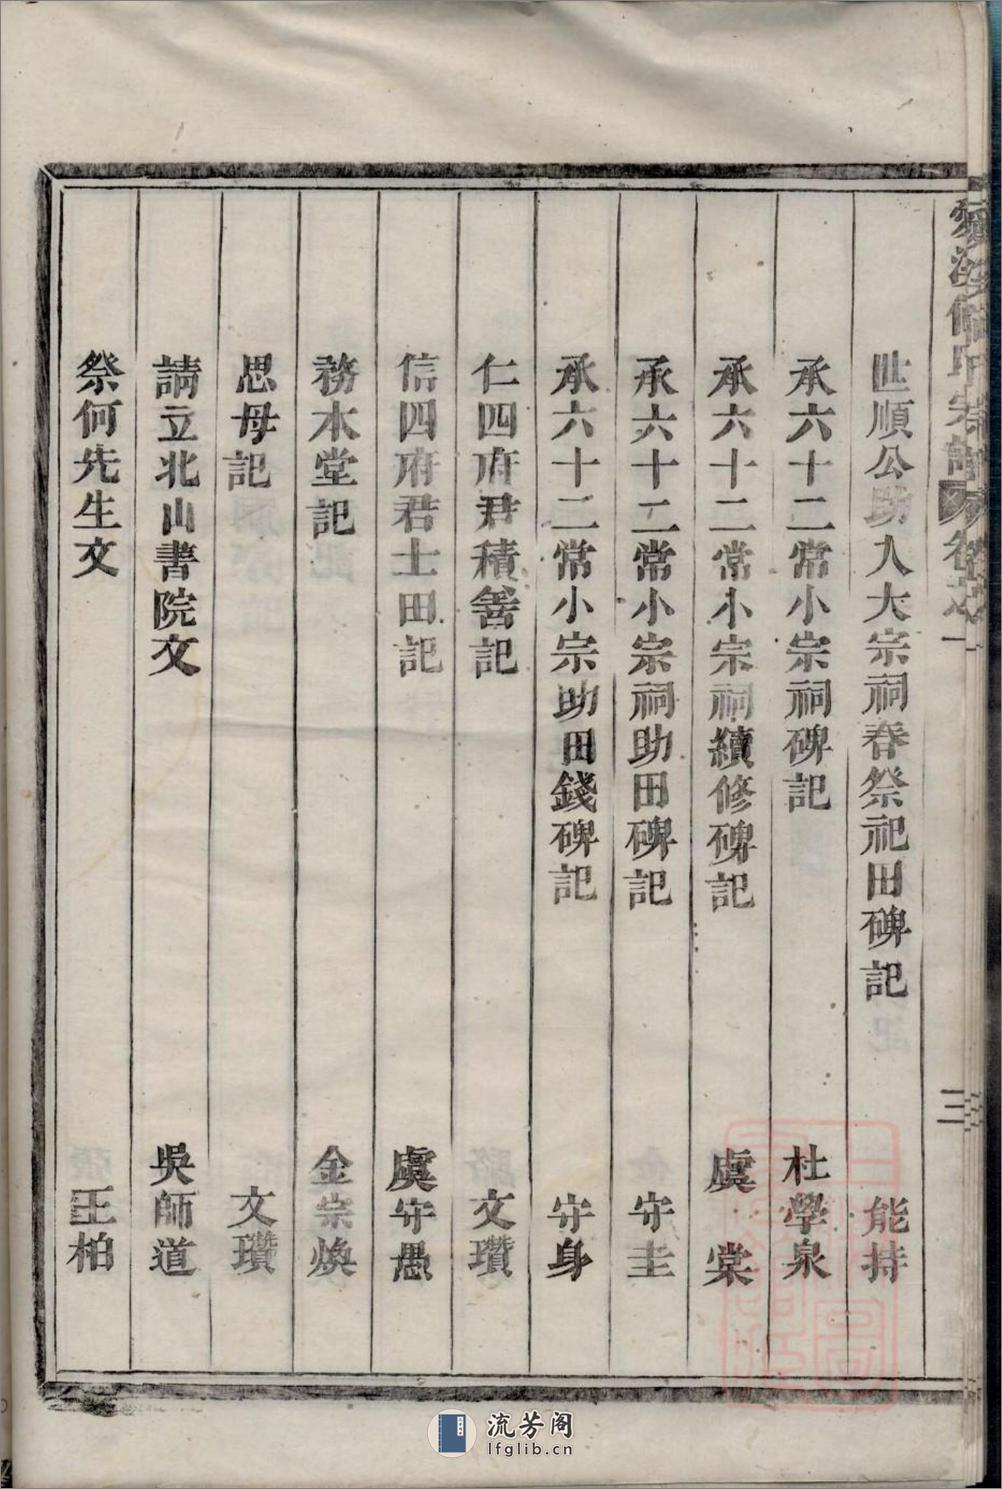 世順公助入大宗祠春祭祀田碑記 能持
承六十二常小宗祠碑記 杜學泉
承六十二常小宗祠續修碑記 虞棠
承六十二常小宗祠助田碑記 守圭
承六十二常小宗助田錢碑記 守身
仁四府君積善記 文瓚
信四府君士田記 虞守愚
務本堂記 金宗煥
思母記 文瓚
請立北山書院文 吳師道
祭何先生文 王柏
三
流芳阁
lfglib.cn